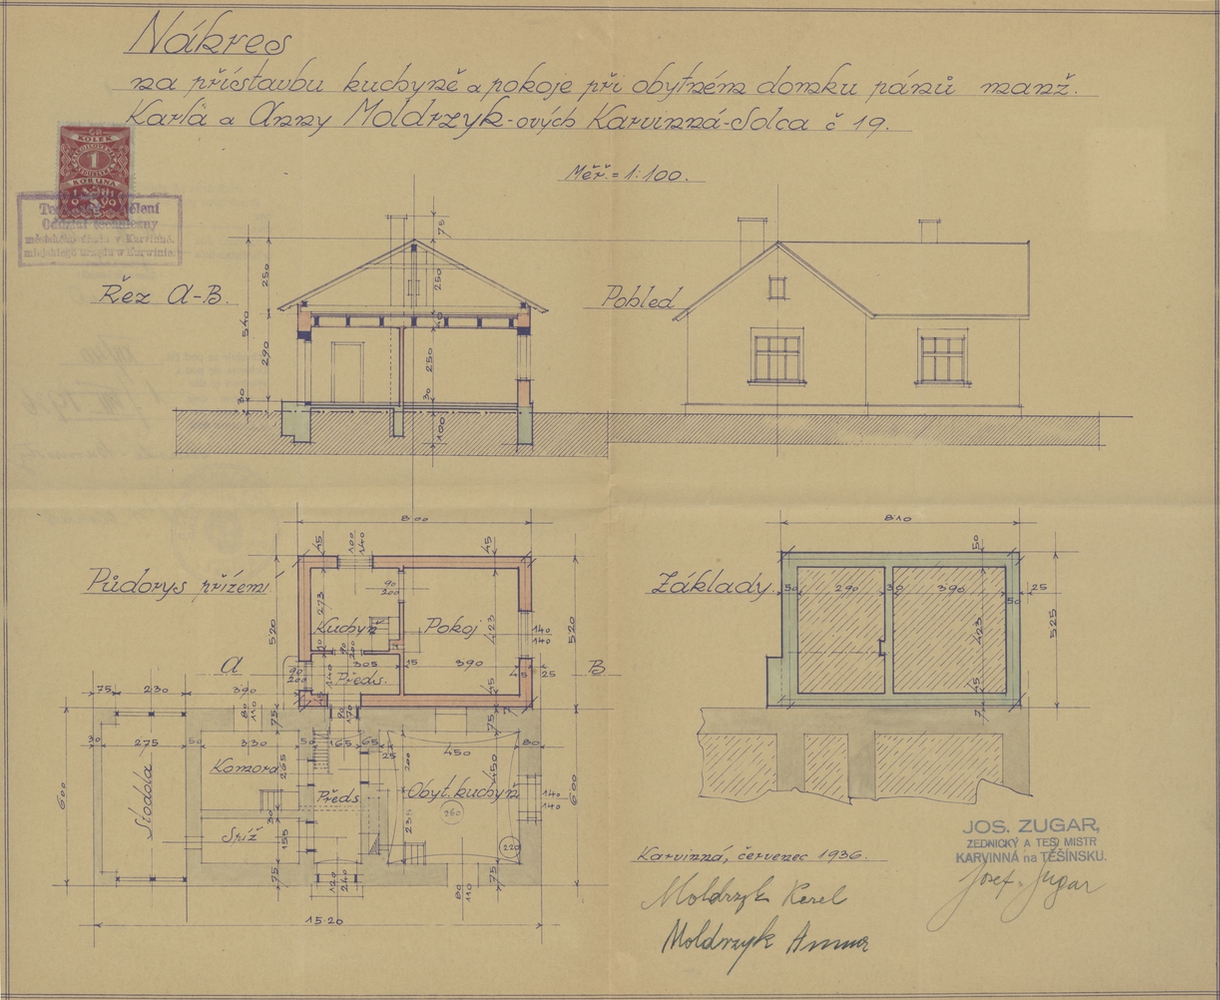 Nákres
na přístavbu kuchyně a pokoje při obytném domku pánů manž.
Karla a Anny Moldrzyk-ových Karvinná-Solca č 19.
KOLEK
1
KORUNA
Oddział techniczny
městského úřadu v Karvinné.
miejskiego urzędu w Karwinie.
Měř. = 1:100.
Řez A-B.
Pohled
75
250
540
290
30
250
250
30
100
Půdorys přízemí
800
45
100
140
45
90
200
273
Kuchyň
Pokoj
423
520
520
140
140
A
B
305
15
390
45
25
Předs.
75
230
390
80
110
75
45
75
7
30
275
50
330
50
165
65
25
450
80
Komora
265
200
450
Stodola
Předs
Obyt. kuchyň
260
140
140
600
600
30
155
Spíž
235
220
75
120
240
80
110
75
15·20
Základy
810
50
50
290
30
390
50
25
423
525
45
7
Karvinná, červenec 1936.
Moldrzyk Karel
Moldrzyk Anna
JOS. ZUGAR,
ZEDNICKÝ A TES. MISTR
KARVINNÁ na TĚŠÍNSKU.
Josef Zugar